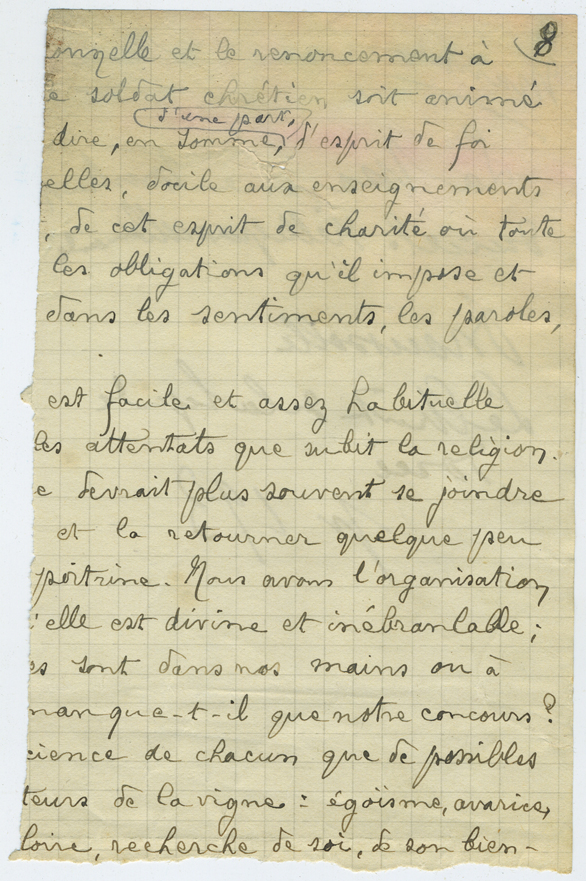 8
onnelle et le renoncement à
e soldat chrétien soit animé
d'une part,
dire, en somme, d'esprit de foi
elles, docile aux enseignements
, de cet esprit de charité où toute
les obligations qu'il impose et
dans les sentiments, les paroles,
est facile et assez habituelle
les attentats que subit la religion.
e devrait plus souvent se joindre
et la retourner quelque peu
poitrine. Nous avons l'organisation
'elle est divine et inébranlable ;
es sont dans nos mains ou à
manque-t-il que notre concours ?
cience de chacun que de possibles
teurs de la vigne : égoïsme, avarice,
loire, recherche de soi, de son bien-